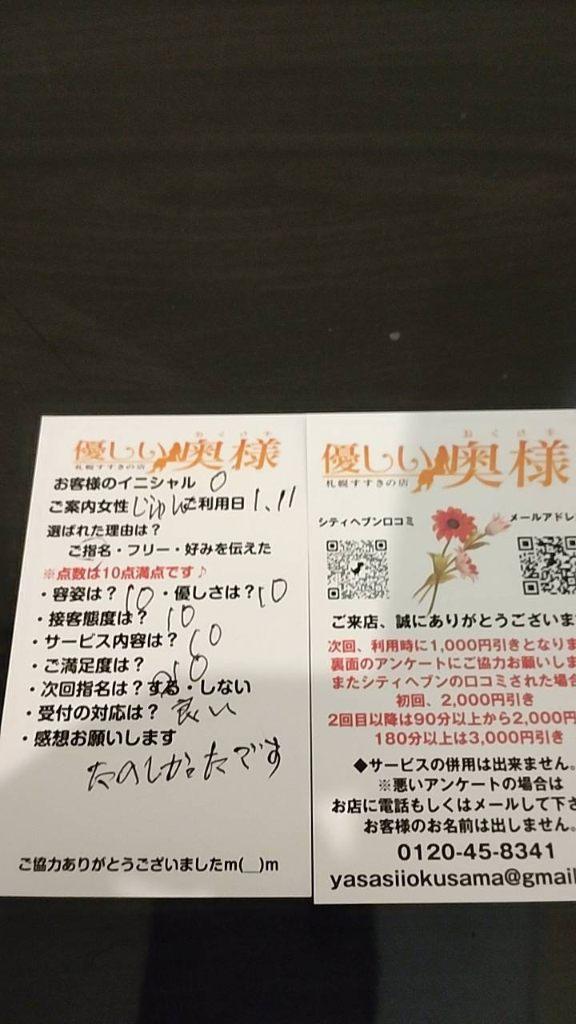 おくさま
優しい奥様
札幌すすきの店
お客様のイニシャル O
ご案内女性 じゅん ご利用日 1.11
選ばれた理由は?
ご指名・フリー・好みを伝えた
※点数は10点満点です♪
・容姿は? 10 ・優しさは? 10
・接客態度は? 10
・サービス内容は? 10
・ご満足度は? 10
・次回指名は? する・しない
・受付の対応は? 良い
・感想お願いします
たのしかったです
ご協力ありがとうございましたm(__)m
おくさま
優しい奥様
札幌すすきの店
シティヘブン口コミ
メールアドレ
ご来店、誠にありがとうございま
次回、利用時に1,000円引きとなりま
裏面のアンケートにご協力お願いしま
またシティヘブンの口コミされた場合
初回、2,000円引き
2回目以降は90分以上から2,000円
180分以上は3,000円引き
◆サービスの併用は出来ません。
※悪いアンケートの場合は
お店に電話もしくはメールして下さ
お客様のお名前は出しません。
0120-45-8341
yasasiiokusama@gmail